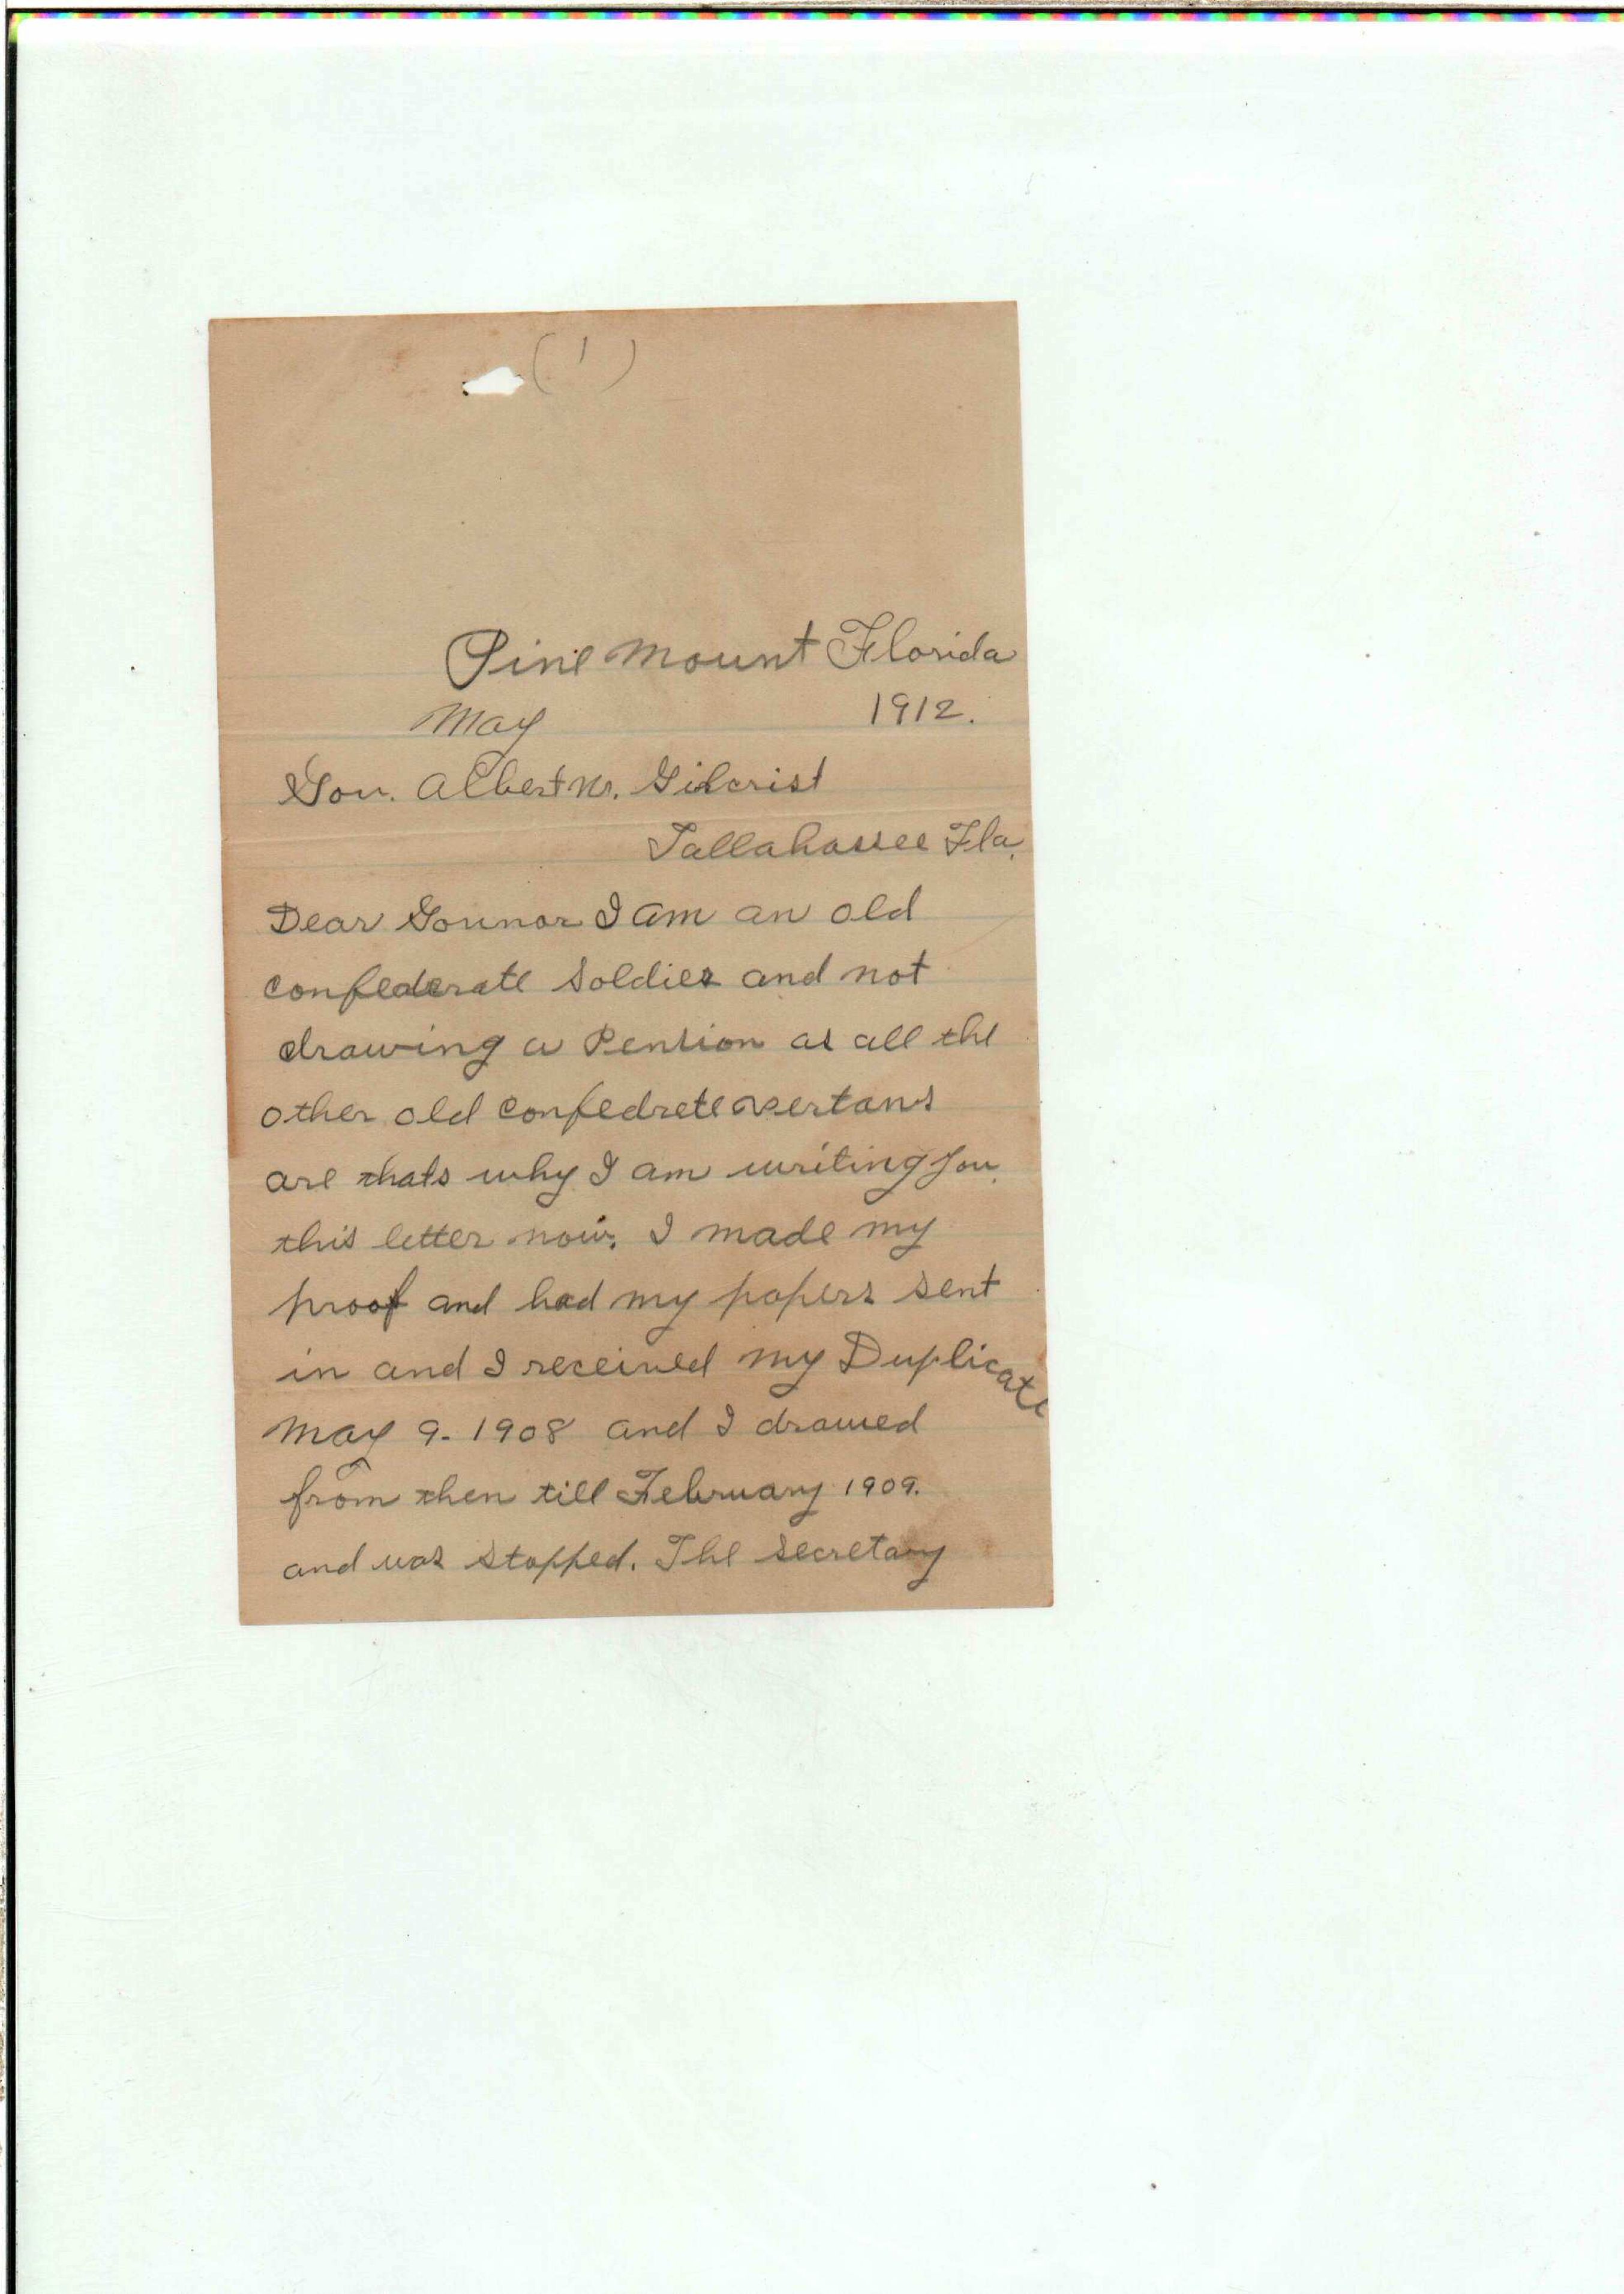 (1)
Pine Mount Florida
May 1912.
Gov. Albert W. Gilcrist
Tallahassee Fla.
Dear Gounor I am an old
confederate soldier and not
drawing a Pension as all the
other old confedrete vertans
are thats why I am writing you
this letter now. I made my
proof and had my papers sent
in and I received my Duplicate
May 9. 1908 and I drawed
from then till February 1909.
and was stopped. The secretary